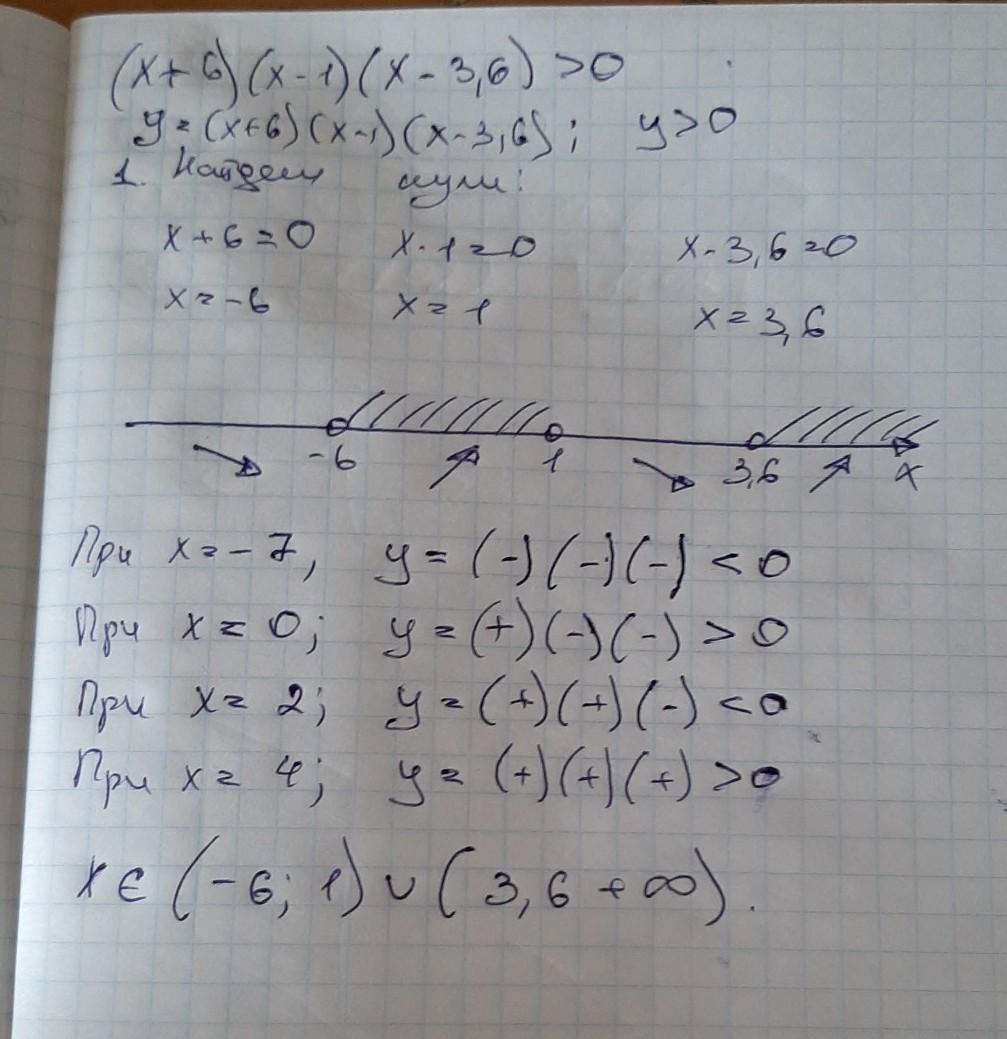 (x+6)(x-1)(x-3,6)>0
y=(x+6)(x-1)(x-3,6); y>0
1. Найдем нули:
x+6=0 x-1=0 x-3,6=0
x=-6 x=1 x=3,6
-6 1 3,6 x
При x=-7, y=(-)(-)(-)<0
При x=0; y=(+)(-)(-)>0
При x=2; y=(+)(+)(-)<0
При x=4; y=(+)(+)(+)>0
x∈(-6;1)∪(3,6+∞).